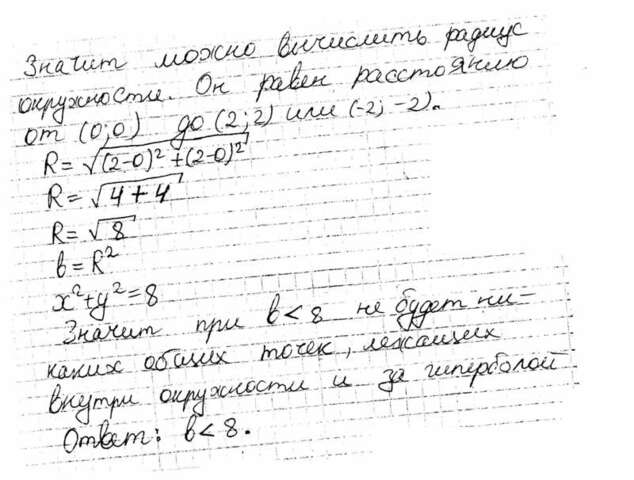 Значит можно вычислить радиус
окружности. Он равен расстоянию
от (0;0) до (2;2) или (-2; -2).
R=√((2-0)²+(2-0)²)
R=√(4+4)
R=√8
в=R²
x²+y²=8
Значит при в<8 не будет ни-
каких общих точек, лежащих
внутри окружности и за гиперболой
Ответ: в<8.